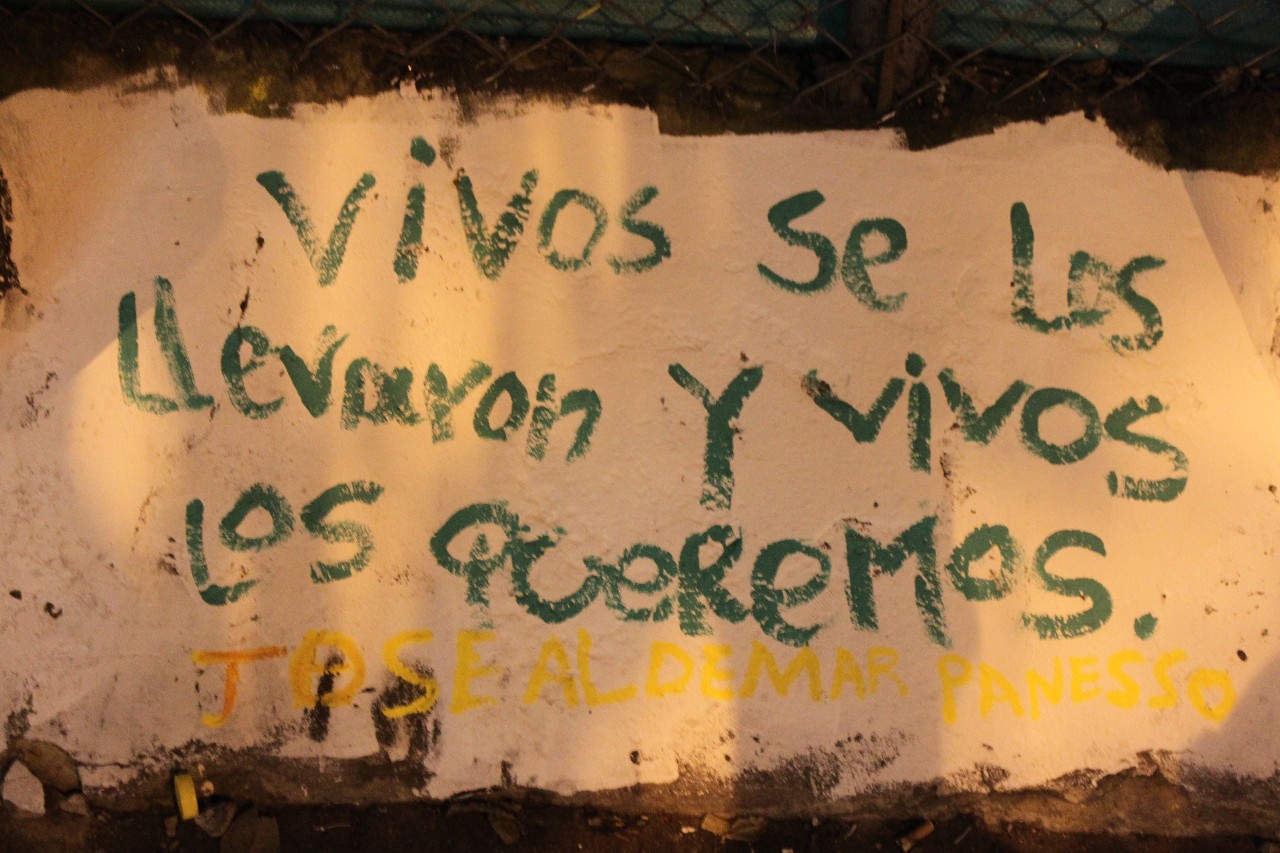 ViVos Se Los
Llevaron Y vivos
Los QUeReMos.
JOSE ALDEMAR PANESSO